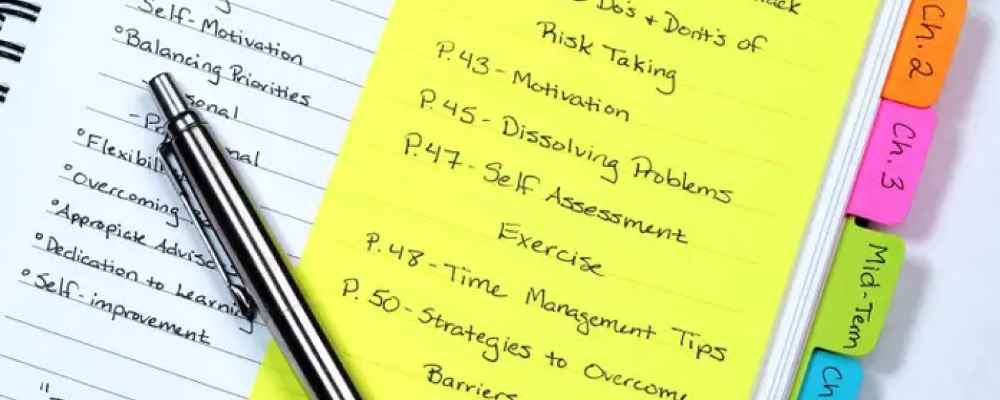 Self-Motivation
°Balancing Priorities
°Flexibil
°Overcoming
°Appropiate Adviso
°Dedication to Learning
°Self-improvement
Do's + Dont's of
Risk Taking
P.43-Motivation
P.45-Dissolving Problems
P.47-Self Assessment
Exercise
P.48-Time Management Tips
P.50-Strategies to Overcome
Barriers
Ch.2
Ch.3
Mid-Term
Ch